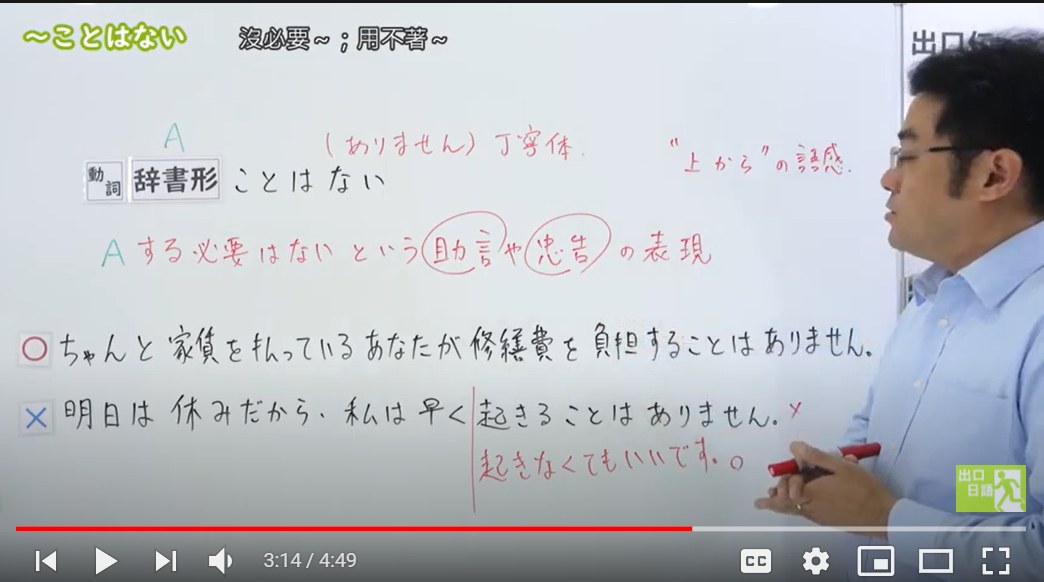 ～ことはない 沒必要～；用不著～
出口
A
(ありません) 丁寧体.
"上から"の語感.
動詞 辞書形 ことはない
Aする必要はないという助言や忠告の表現
○ ちゃんと家賃を払っているあなたが修繕費を負担することはありません。
× 明日は休みだから、私は早く起きることはありません。×
起きなくてもいいです。○
出口
日語
3:14 / 4:49
CC